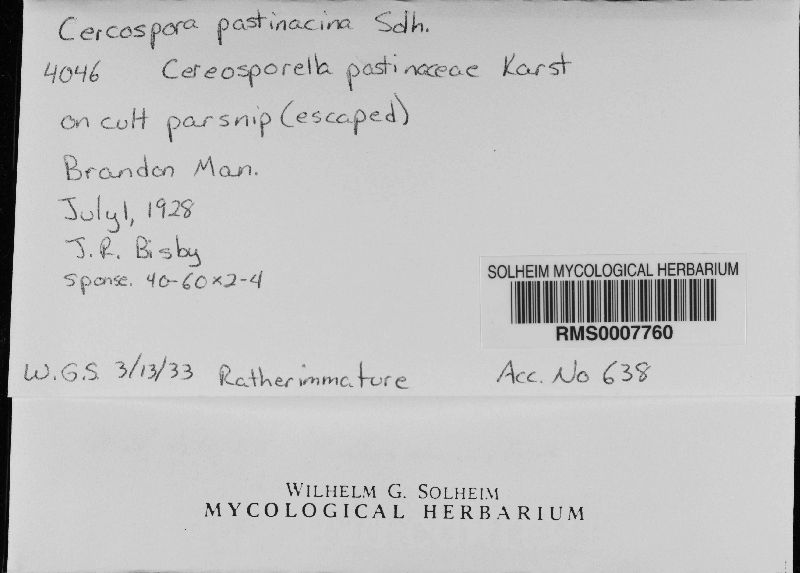 Cercospora pastinacina Solh.
4046 Cereosporella pastinaceae Karst
on cult parsnip (escaped)
Brandon Man.
July 1, 1928
J.R. Bisby
Sponse. 40-60x2-4
SOLHEIM MYCOLOGICAL HERBARIUM
RMS0007760
W.G.S. 3/13/33 Rather immature Acc. No 638
WILHELM G. SOLHEIM
MYCOLOGICAL HERBARIUM